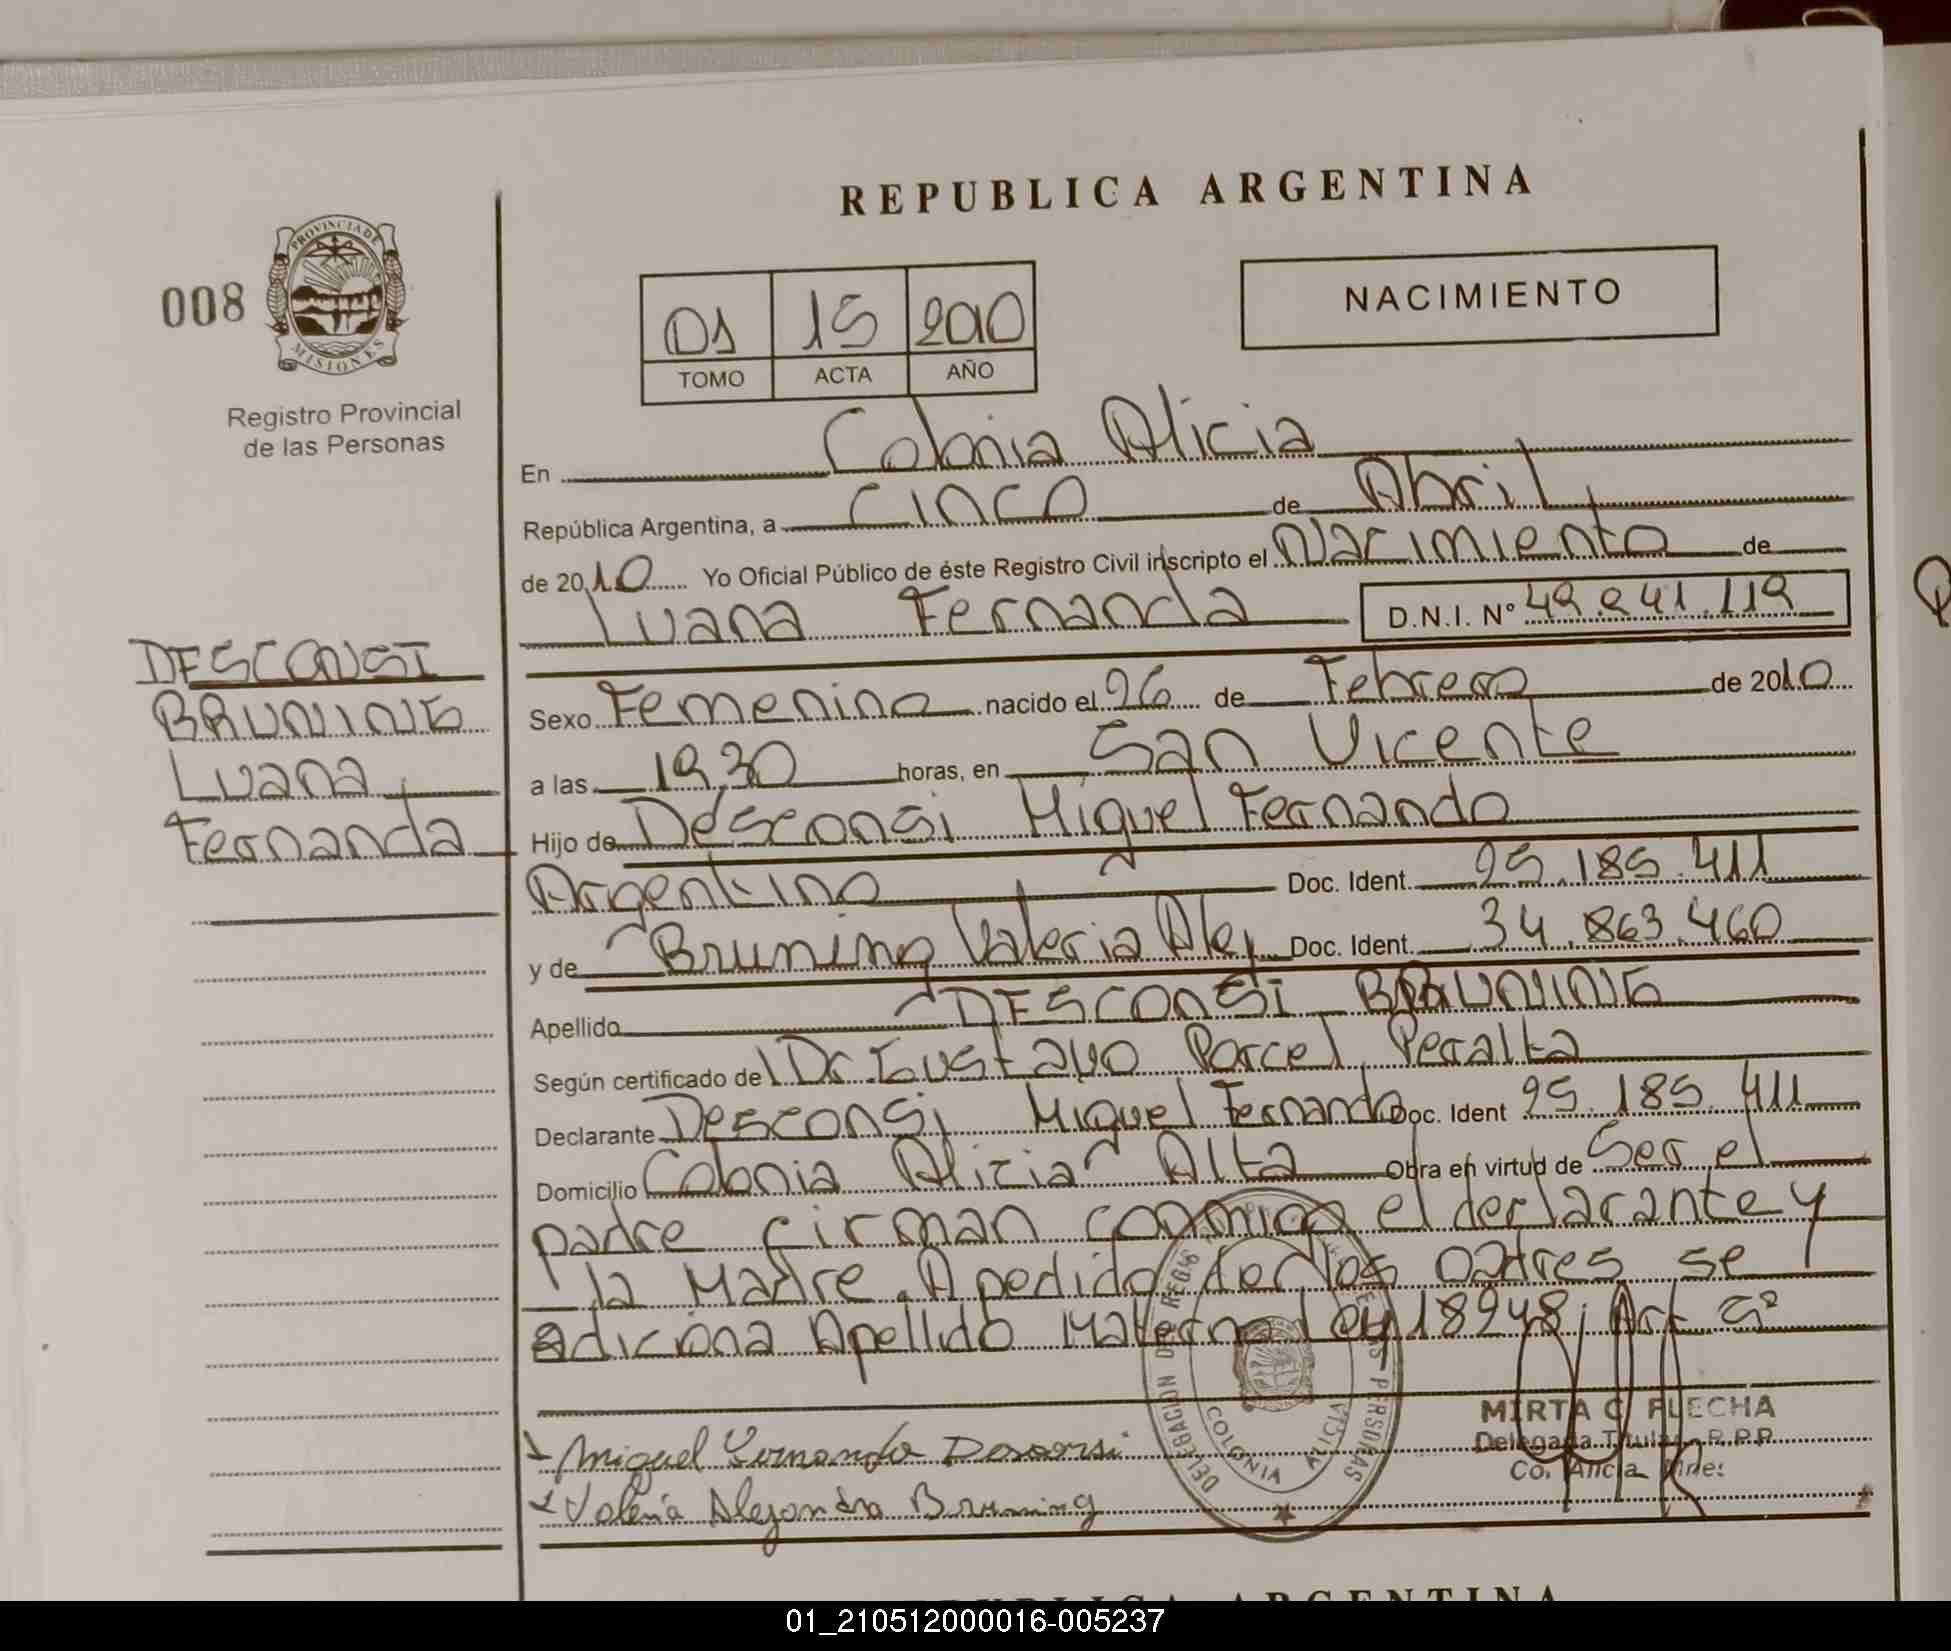 REPUBLICA ARGENTINA
008
PROVINCIA DE
MISIONES
Registro Provincial
de las Personas
NACIMIENTO
01 15 2010
TOMO ACTA AÑO
En Colonia Alicia
República Argentina, a cinco de Abril
de 2010 Yo Oficial Público de éste Registro Civil inscripto el Nacimiento de
Luana Fernanda D.N.I. Nº 49.841.119
DESCONSI
BRUNING
Luana
Fernanda
Sexo Femenino nacido el 26 de Febrero de 2010
a las 19,30 horas, en San Vicente
Hijo de Desconsi Miguel Fernando
Argentino Doc. Ident. 25.185.411
y de Bruning Valeria Alej Doc. Ident. 34.863.460
Apellido DESCONSI BRUNING
Según certificado de Dr. Gustavo Porcel Peralta
Declarante Desconsi Miguel Fernando Doc. Ident 25.185.411
Domicilio Colonia Alicia Alta Obra en virtud de Ser el
padre firman conmigo el declarante y
la Madre. A pedido de los padres se
adiciona Apellido Materno Ley 18248, Art 5º
DELEGACION COLONIA ALICIA PERSONAS
MIRTA C. FLECHA
Delegada Titular R.P.P.
Co. Alicia
Miguel Fernando Desconsi
Valeria Alejandra Bruning
REPUBLICA ARGENTINA
01_210512000016-005237